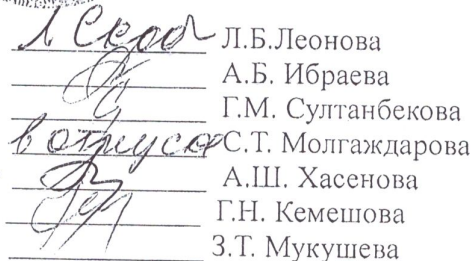 Л.Б.Леонова
А.Б. Ибраева
Г.М. Султанбекова
в отпуске С.Т. Молгаждарова
А.Ш. Хасенова
Г.Н. Кемешова
З.Т. Мукушева